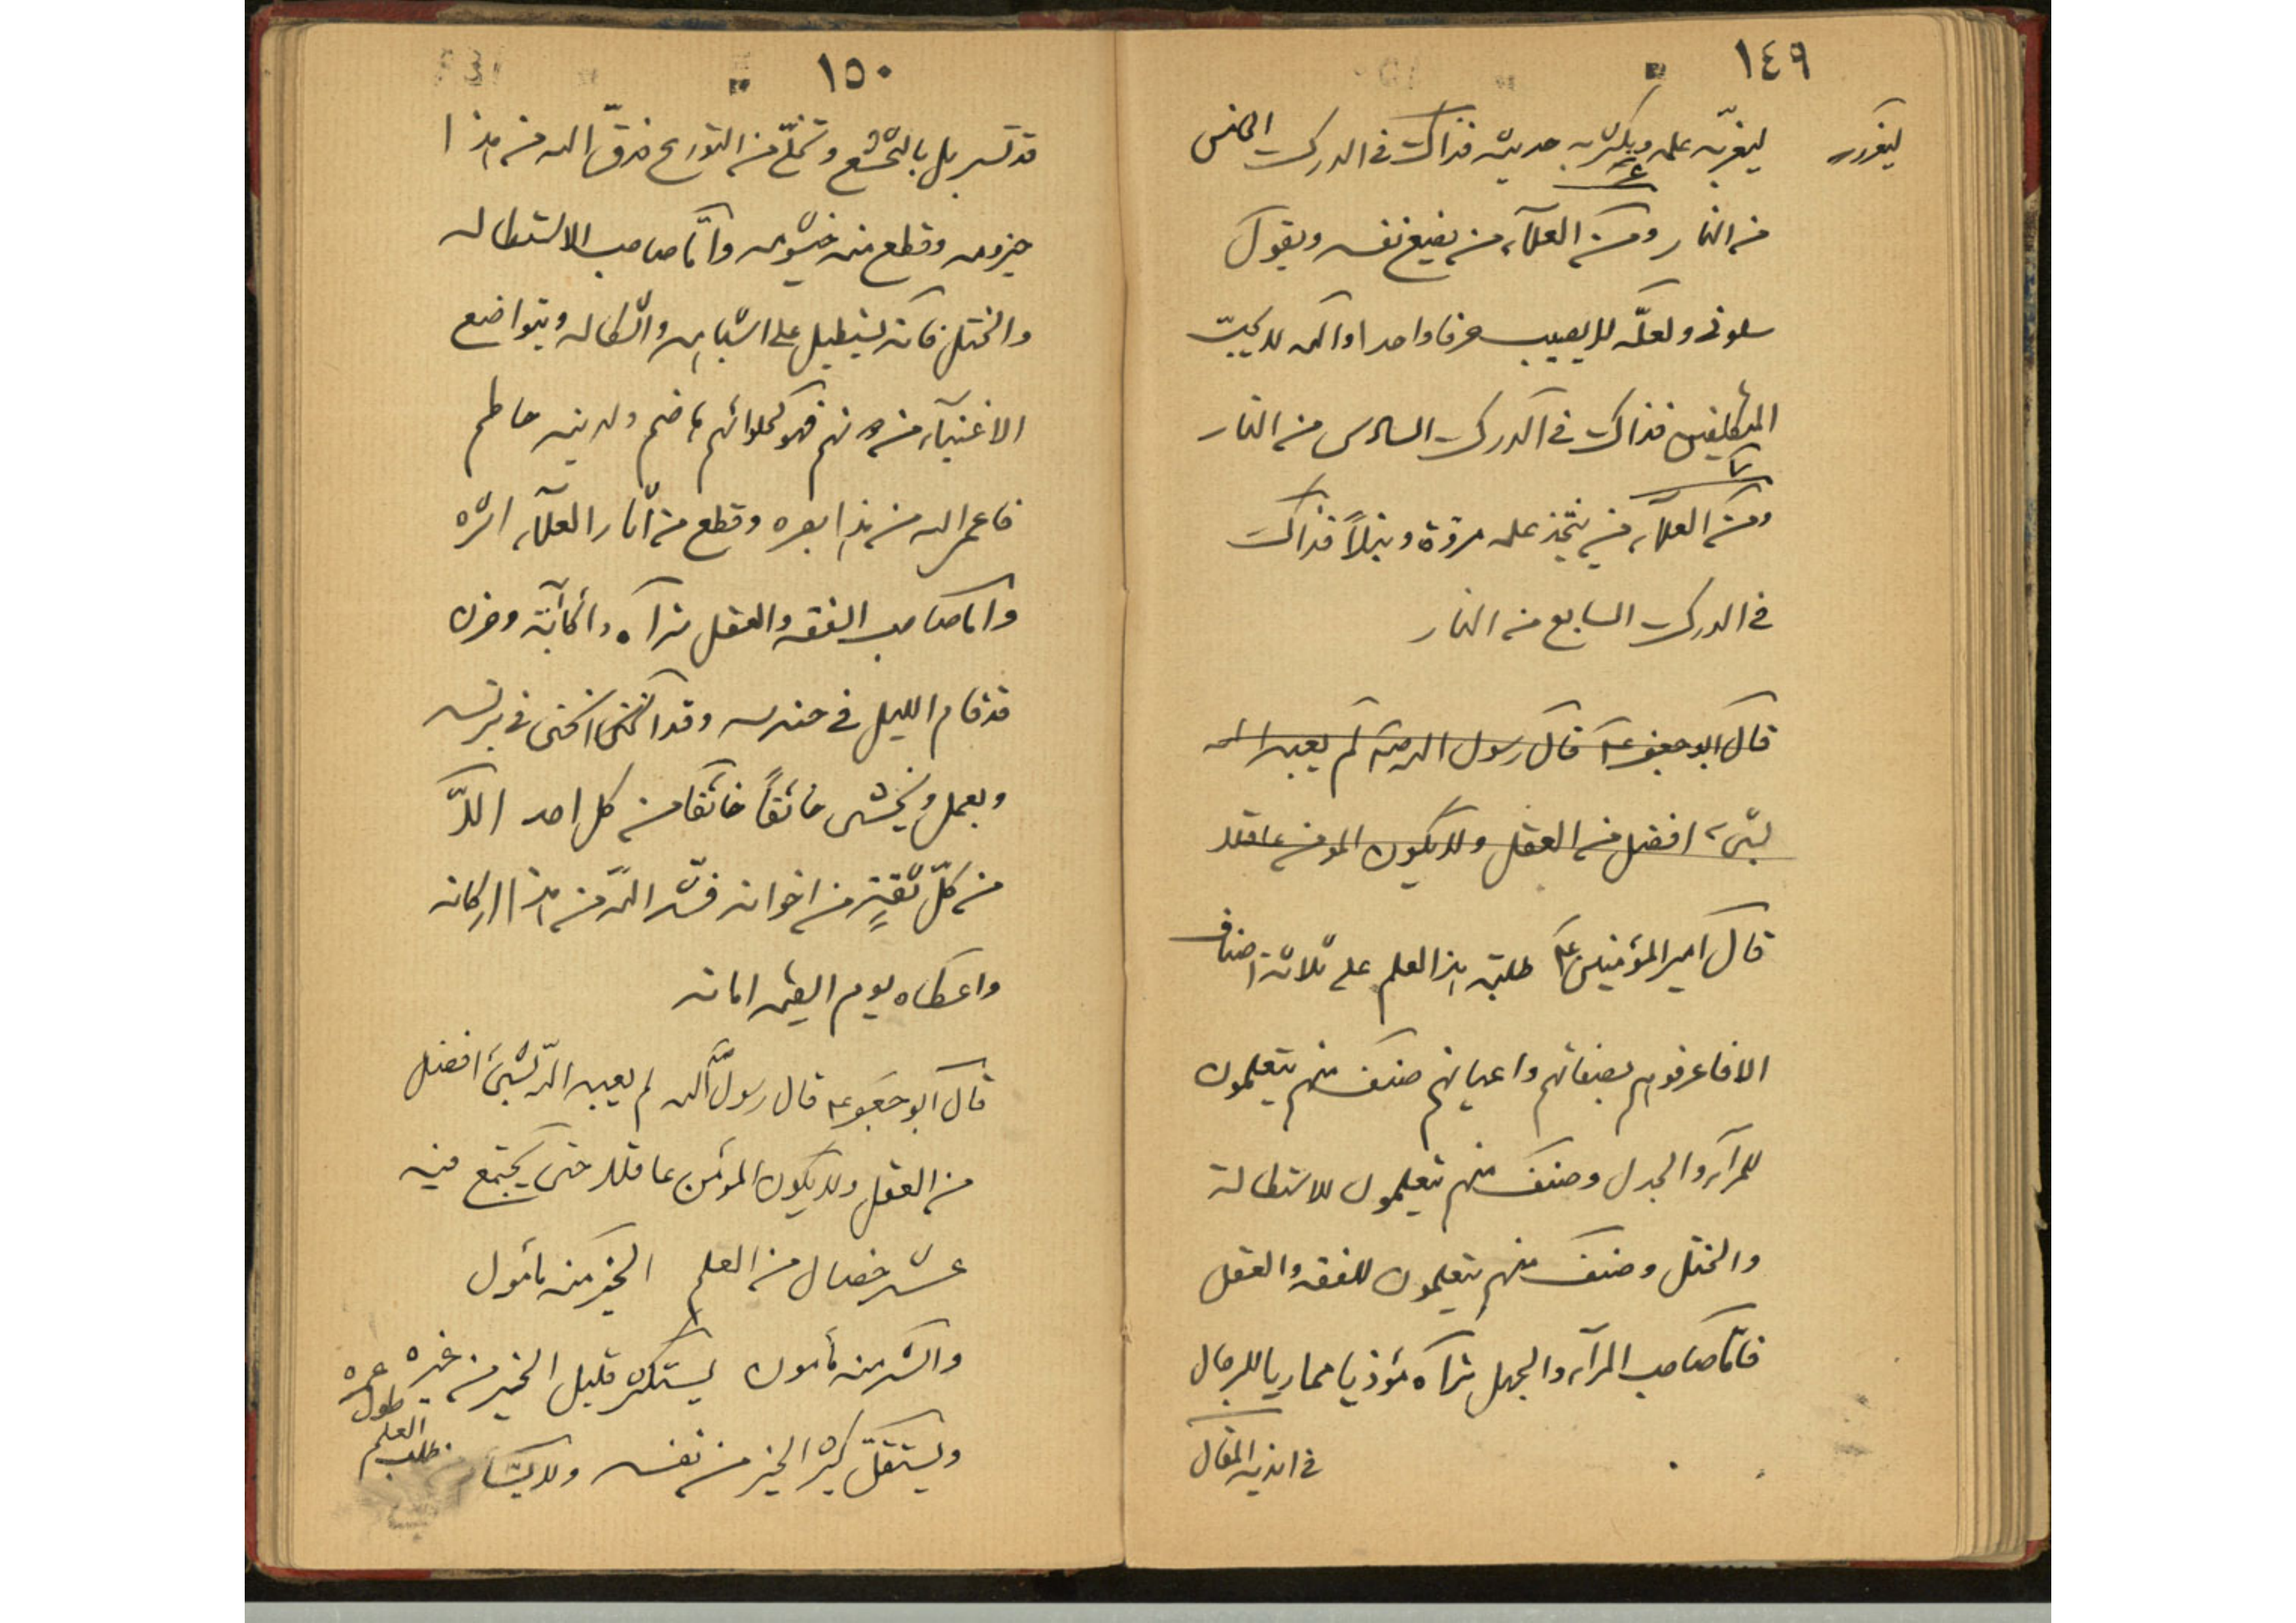 ١٤٩
ليغزر ليغزّر به علمه ويكثر به حديثه فذاك في الدرك الخامس
من النار ومن العلمآء من يضع نفسه ويقول
سلونى ولعلّه لا يصيب حرفا واحدا والله لا يحبّ
المتكلفين فذاك في الدرك السادس من النار
ومن العلمآء من يتخذ علمه مروّة ونبلاً فذاك
في الدرك السابع من النار
قال ابو جعفر ع قال رسول الله ص لم يعبد الله
بشىء افضل من العقل ولا يكون المومن عاقلا
قال امير المؤمنين ع طلبة هذا العلم على ثلاثة اصناف
الا فاعرفوهم بصفاتهم واعيانهم صنف منهم يتعلمون
للمرآء والجدل وصنف منهم يتعلمون للاستطالة
والختل وصنف منهم يتعلمون للفقه والعقل
فامّا صاحب المرآء والجهل تراه مؤذيا مماريا للرجال
في اندية المقال
١٥٠
قد تسربل بالتخشع وتخلّى من التورع فدقّ الله من هذا
حيزومه وقطع منه خيشومه وامّا صاحب الاستطاله
والختل فانه يستطيل على اشباهه واشكاله ويتواضع
الاغنيآء من دونهم فهو لحلوائهم هاضم ولدينه حاطم
فاعمى الله من هذا بصره وقطع من آثار العلمآء اثره
واما صاحب الفقه والعقل تراه ذا كآبة وحزن
قد قام الليل في حندسه وقد انحنى في برنسه
ويعمل ويخشى خائفاً خائفا من كل احد الّا
من كلّ ثقةٍ من اخوانه فشدّ اللّه من هذا اركانه
واعطاه يوم القيمه امانه
قال ابو جعفر ع قال رسول اللّه لم يعبد اللّه بشىء افضل
من العقل ولا يكون المؤمن عاقلا حتى يجتمع فيه
عشر خصال من العلم الخير منه مأمول
والشر منه مأمون يستكثر قليل الخير من غيره
ويستقلّ كثير الخير من نفسه ولا يسأم
طول عمره
طلب العلم